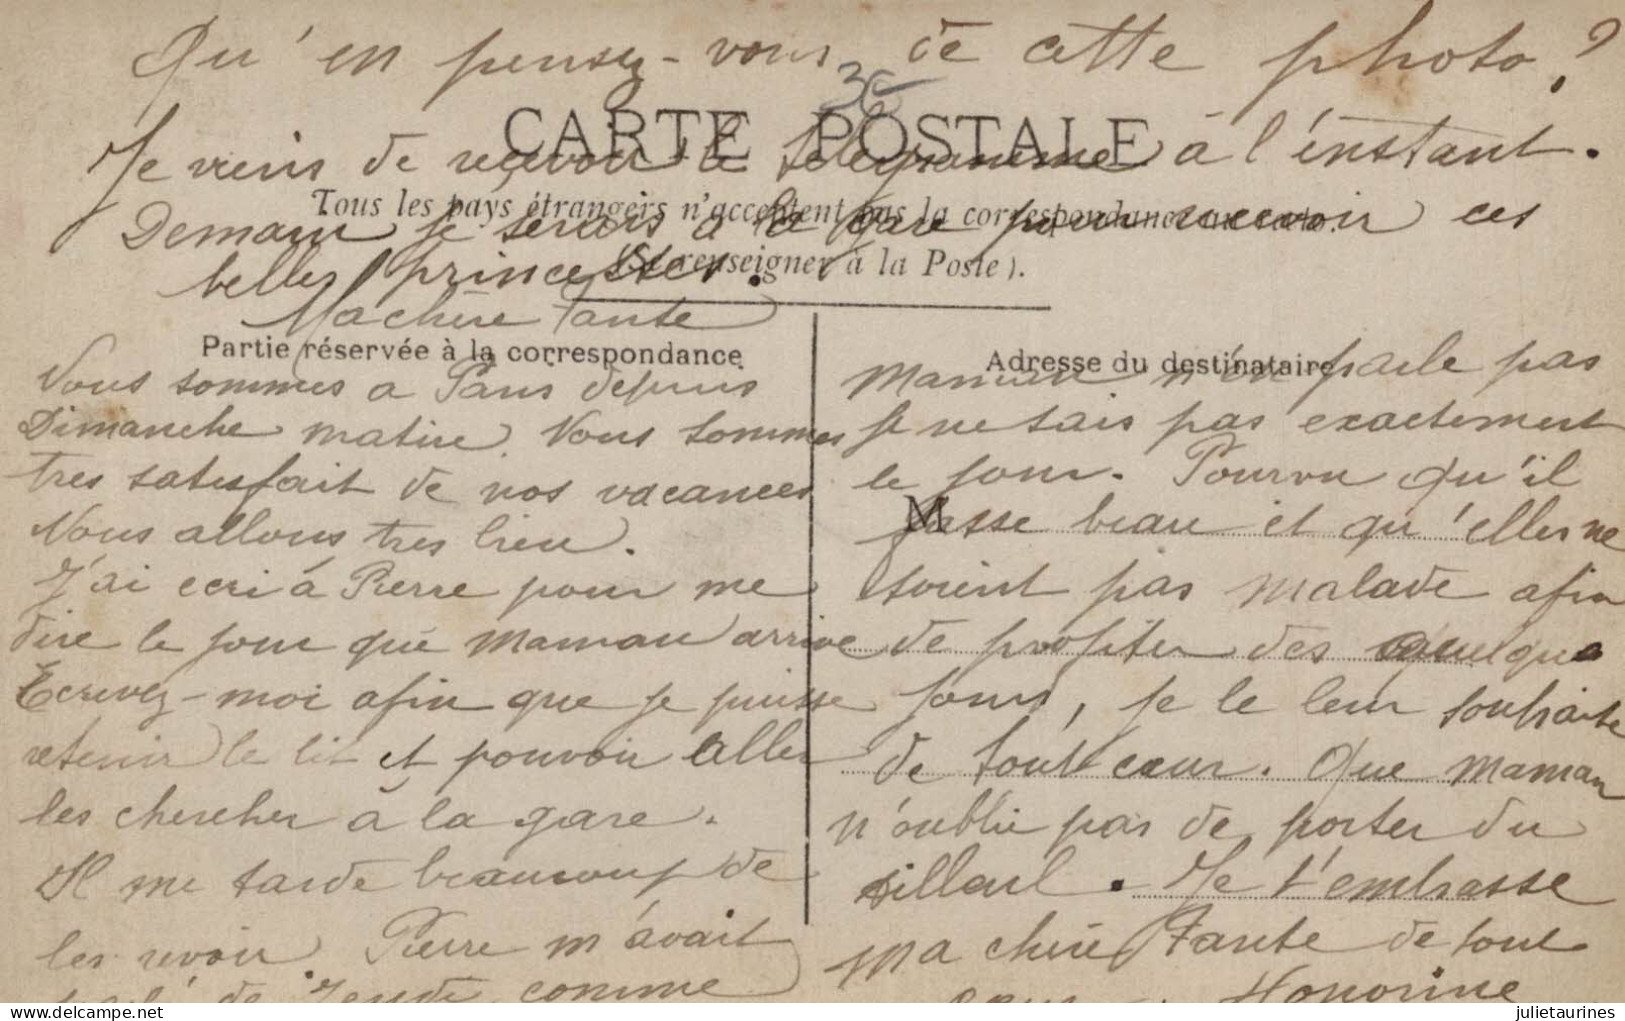 Qu'en pensez-vous de cette photo?
36
CARTE POSTALE
Je viens de recevoir le télégramme à l'instant.
Tous les pays étrangers n'acceptent pas la correspondance au recto.
Demain je serais à la gare pour recevoir ces
(Se renseigner à la Poste).
belles princesses.
Ma chère Tante
Partie réservée à la correspondance
Nous sommes a Paris depuis
Dimanche matin. Nous sommes
tres satisfait de nos vacances
Nous allons tres bien.
J'ai ecri à Pierre pour me
dire le jour que Maman arrive
Ecrivez-moi afin que je puisse
retenir le lit et pouvoir aller
les chercher à la gare.
Il me tarde beaucoup de
les revoir. Pierre m'avait
parlé de Jeudi comme
Adresse du destinataire
Maman n'en parle pas
Je ne sais pas exactement
le jour. Pourvu qu'il
M
fasse beau et qu'elles ne
soient pas malade afin
de profiter des quelque
jours, je le leur souhaite
de tout cœur. Que Maman
n'oublie pas de porter du
tilleul. Je t'embrasse
Ma chère Tante de tout
cœur. Honorine
delcampe.net
julietaurines